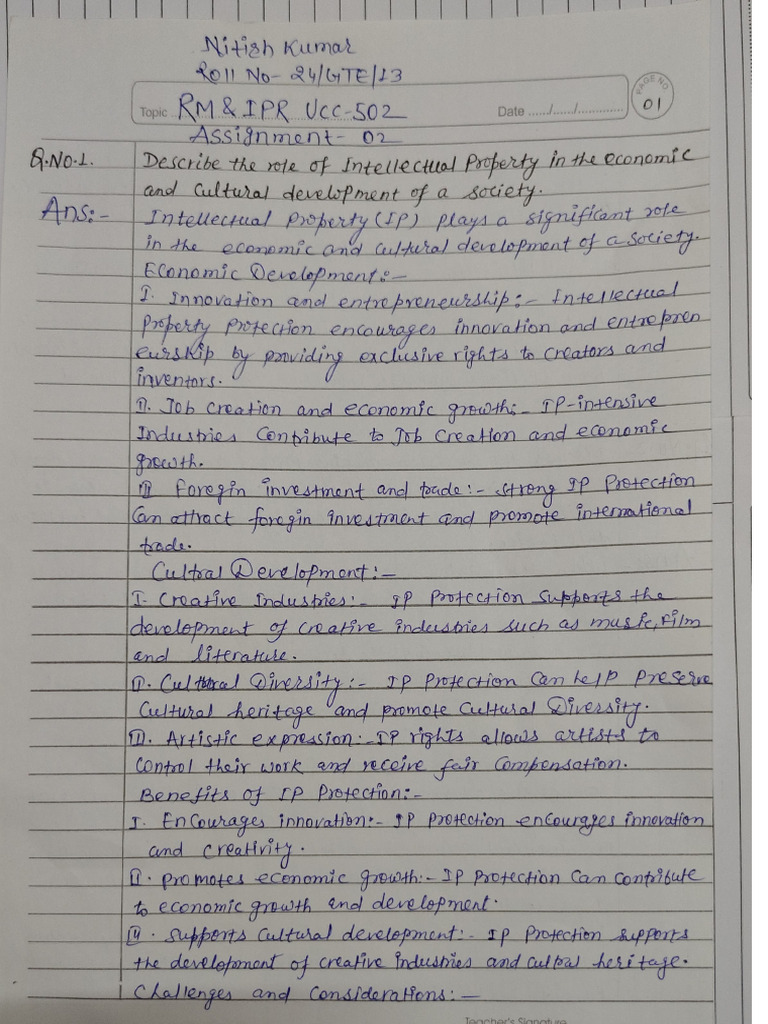 Nitish Kumar
Roll No- 24/GTE/13
PAGE NO.
Topic RM & IPR UCC-502 Date ....../....../.............
01
Assignment- 02
Q.No.1. Describe the role of Intellectual Property in the economic
and Cultural development of a society.
Ans:- Intellectual Property (IP) plays a significant role
in the economic and cultural development of a society.
Economic Development:-
I. Innovation and entrepreneurship:- Intellectual
Property Protection encourages innovation and entrepren
eurship by providing exclusive rights to creators and
inventors.
II. Job creation and economic growth:- IP-intensive
Industries Contribute to Job Creation and economic
growth.
III Foregin investment and trade:- Strong IP Protection
Can attract foregin investment and promote international
trade.
Cultral Development:-
I- Creative Industries:- IP Protection Supports the
development of creative industries such as music, Film
and literature.
II. Cultural Diversity:- IP Protection Can help Preserve
Cultural heritage and promote Cultural Diversity.
III. Artistic expression:- IP rights allows artists to
Control their work and receive fair Compensation.
Benefits of IP Protection:-
I. EnCourages innovation:- IP Protection encourages innovation
and Creativity.
II. Promotes economic growth:- IP Protection Can Contribute
to economic growth and development.
III. Supports Cultural development:- IP Protection supports
the development of Creative Industries and cultral heritage.
Challenges and Considerations:-
Teacher's Signature